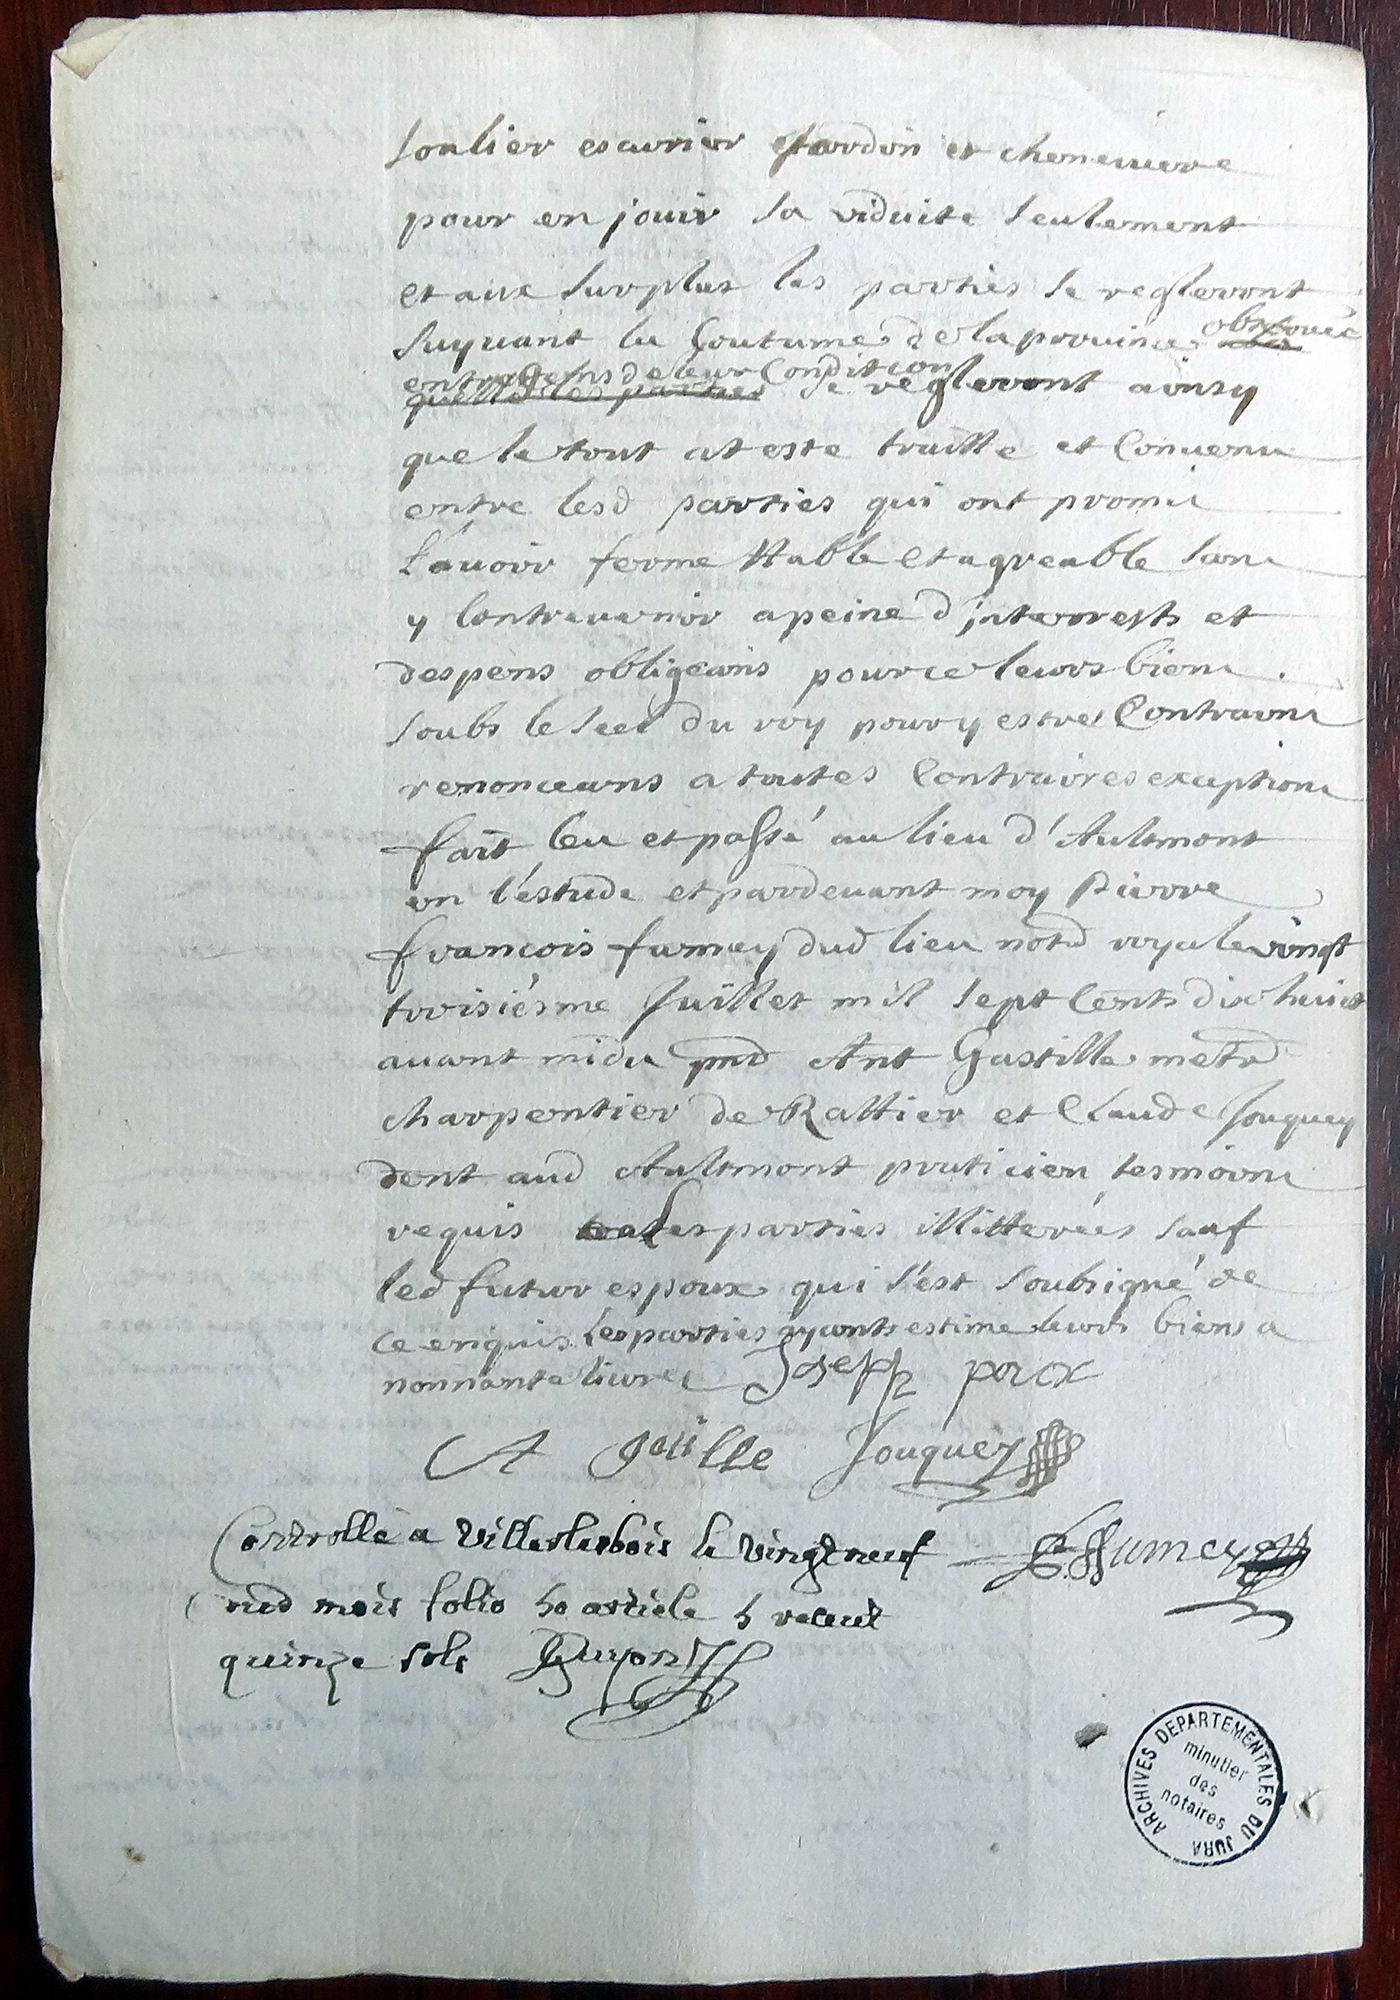 soulier escurier Jardin et cheneviere
pour en jouir sa viduite seulement
et aux surplus les parties se regleront
suyuant la Coutume de la prouince obserué
entre gens de leur Condition
quelles les parties se regleront ainsy
que le tout at esté traitte et Conuenu
entre lesd parties qui ont promis
l'auoir ferme stable et agreable sans
y Contreuenir a peine d'interrests et
despens obligeans pour ce leurs biens
soubs le seel du roy pour y estre Contrains
renonceans a toutes Contraires exceptions
fait leu et passé au lieu d'Aultmont
en l'estude et pardeuant moy Pierre
françois fumey dud lieu notre royal le vingt
troisiésme Juillet mil sept Cents dix huict
auant midy pnt Ant Gastille metre
charpentier de Rattier et Claude Jouquey
dent aud Aultmont praticien tesmoins
requis les parties illitterées sauf
led futur espoux qui s'est soubsigné de
ce enquis les parties ayants estime leurs biens a
nonnante liures Joseph poux
A Gatille Jouquey
Controllé a Villerslesbois le vingt neuf
P. F. Fumey
nud mois folio 50 article 5 receut
quinze sols Guyon
ARCHIVES DEPARTEMENTALES DU JURA
minutier
des
notaires